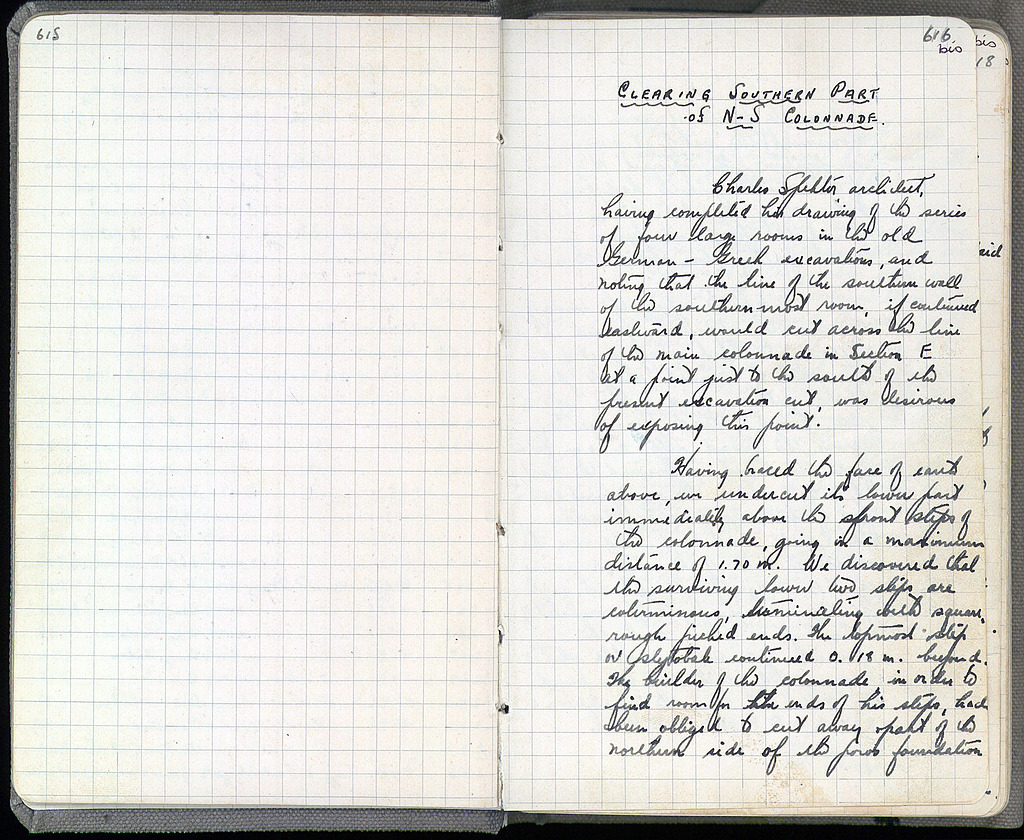 615
616
bis
bis
18
CLEARING SOUTHERN PART
OF N-S COLONNADE.
Charles Spektor architect,
having completed his drawing of the series
of four large rooms in the old
German - Greek excavations, and
noting that the line of the southern wall
of the southernmost room, if continued
eastward, would cut across the line
of the main colonnade in Section E
at a point just to the south of the
present excavation cut, was desirous
of exposing this point.
Having braced the face of earth
above, we undercut its lower part
immediately above the front steps of
the colonnade, going in a maximum
distance of 1.70 m. We discovered that
the surviving lower two steps are
coterminous, terminating with square,
rough picked ends. The topmost step
or stylobate continued 0.18 m. beyond.
The builder of the colonnade in order to
find room for the ends of his steps, had
been obliged to cut away apart of the
northern side of the poros foundation